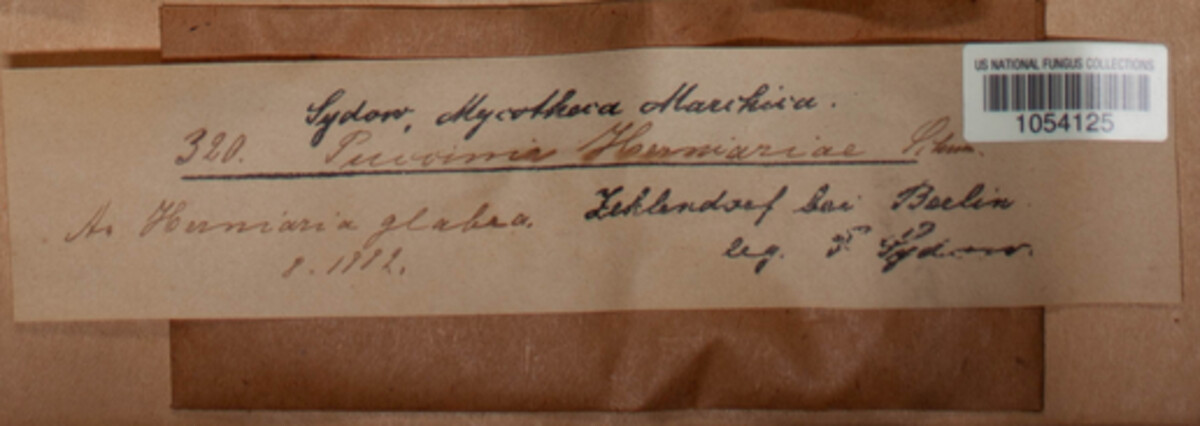 US NATIONAL FUNGUS COLLECTIONS
1054125
Sydow, Mycotheca Marchica.
320. Puccinia Herniariae
An Herniaria glabra. Zehlendorf bei Berlin
8. 1882. leg. P Sydow.